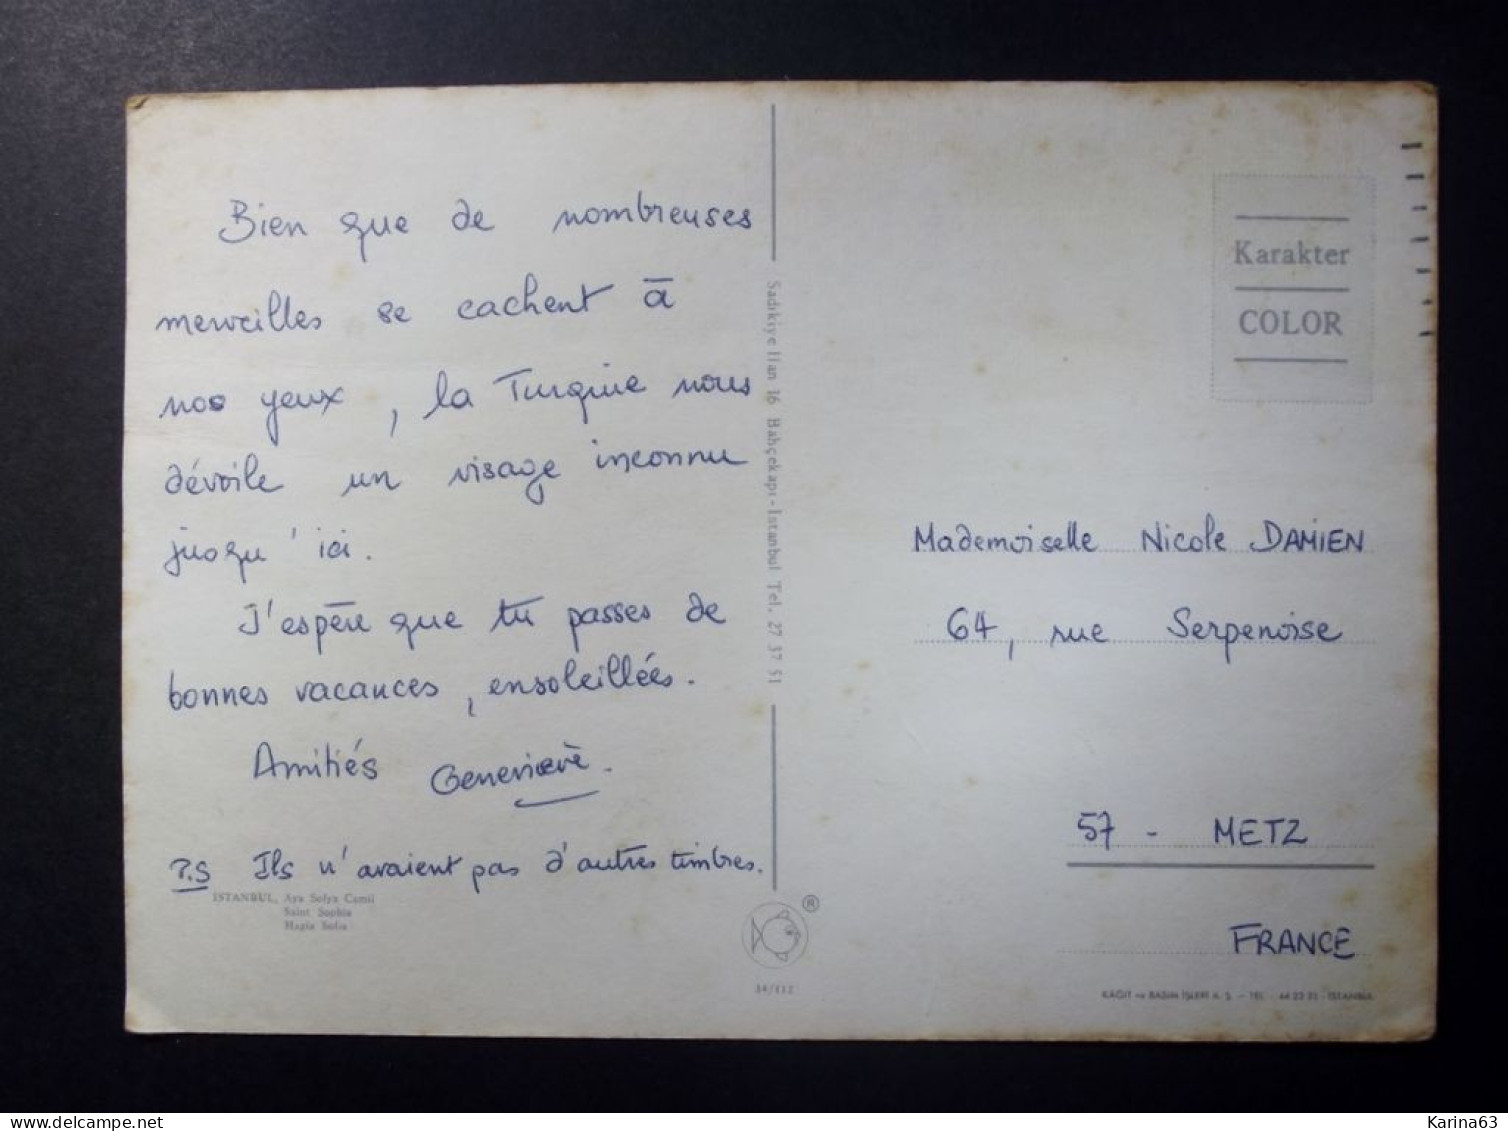 Bien que de nombreuses
merveilles se cachent à
nos yeux, la Turquie nous
dévoile un visage inconnu
jusqu'ici.
J'espère que tu passes de
bonnes vacances, ensoleillées.
Amitiés Geneviève.
P.S Ils n'avaient pas d'autres timbres.
ISTANBUL, Aya Sofya Camii
Saint Sophia
Hagia Sofia
Sadıkiye Han 16 Bahçekapı - Istanbul Tel. 27 37 51
®
34/112
Karakter
COLOR
Mademoiselle Nicole DAMIEN
64, rue Serpenoise
57 - METZ
FRANCE
KÂĞIT ve BASIM İŞLERİ A. Ş. - TEL : 44 22 21 - İSTANBUL
Karina63